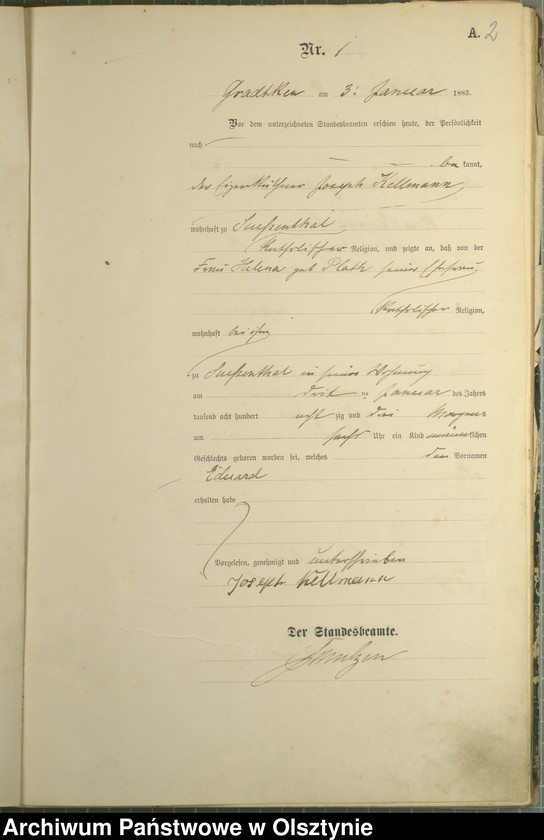 A. 2
Nr. 1
Gradtken am 3. Januar 1883.
Vor dem unterzeichneten Standesbeamten erschien heute, der Persönlichkeit
nach
be kannt,
der Eigenkäthner Joseph Kellmann,
wohnhaft zu Suessenthal
katholischer Religion, und zeigte an, daß von der
Frau Helena geb. Plath seiner Ehefrau,
katholischer Religion,
wohnhaft bei ihm
zu Suessenthal in seiner Wohnung
am drit ten Januar des Jahres
tausend acht hundert acht zig und drei Morgens
um sechs Uhr ein Kind männlichen
Geschlechts geboren worden sei, welches den Vornamen
Eduard
erhalten habe
Vorgelesen, genehmigt und unterschrieben
Joseph Kellmann
Der Standesbeamte.
Archiwum Państwowe w Olsztynie